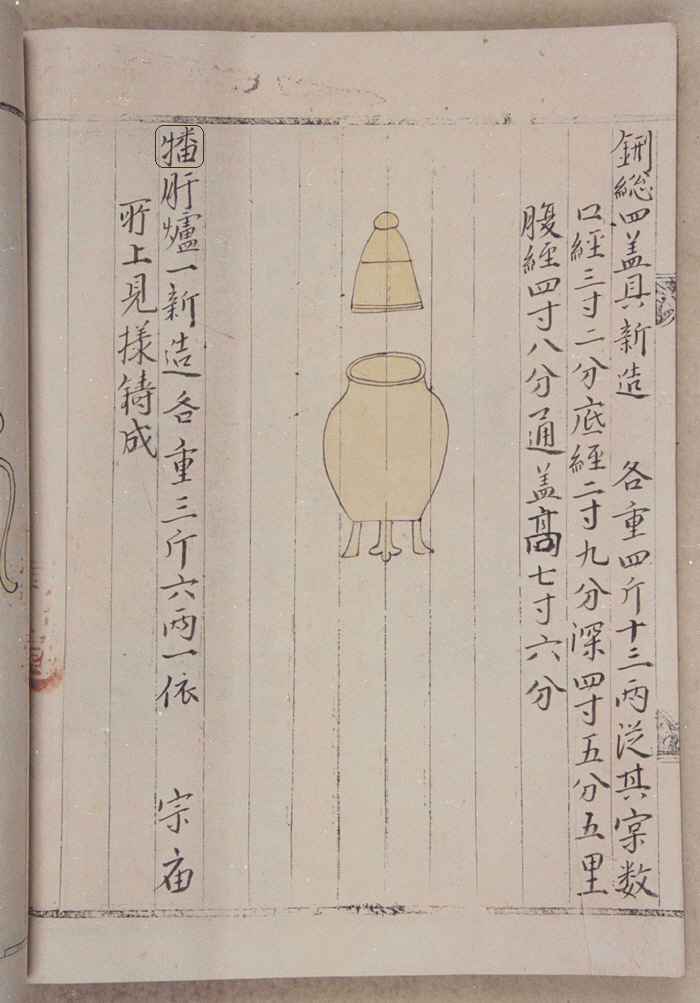 鉶総四盖具新造 各重四斤十三兩従其実数
口経三寸二分底経二寸九分深四寸五分五里
腹経四寸八分通盖高七寸六分
肝爐一新造各重三斤六兩一依 宗庙
所上見㨾鑄成